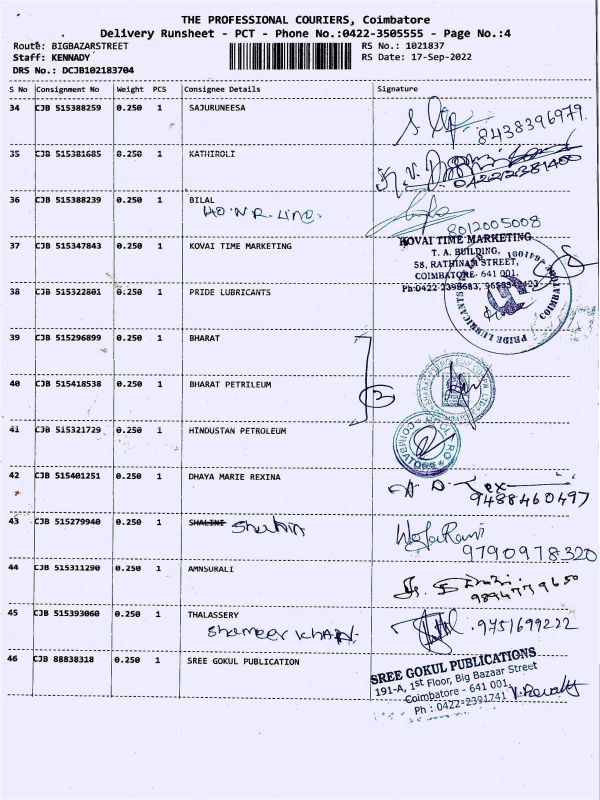 THE PROFESSIONAL COURIERS, Coimbatore
Delivery Runsheet - PCT - Phone No.:0422-3505555 - Page No.:4
Route: BIGBAZARSTREET RS No.: 1021837
Staff: KENNADY RS Date: 17-Sep-2022
DRS No.: DCJB102183704
S No Consignment No Weight PCS Consignee Details Signature
34 CJB 515388259 0.250 1 SAJURUNEESA
8438396979.
35 CJB 515381685 0.250 1 KATHIROLI
04222381400
36 CJB 515388239 0.250 1 BILAL
8012005008
37 CJB 515347843 0.250 1 KOVAI TIME MARKETING
KOVAI TIME MARKETING
T. A. BUILDING,
58, RATHINAM STREET,
COIMBATORE- 641 001.
Ph:0422-
38 CJB 515322801 0.250 1 PRIDE LUBRICANTS
PRIDE LUBRICANTS
39 CJB 515296899 0.250 1 BHARAT
40 CJB 515418538 0.250 1 BHARAT PETRILEUM
41 CJB 515321729 0.250 1 HINDUSTAN PETROLEUM
COIMBATORE
42 CJB 515401251 0.250 1 DHAYA MARIE REXINA
9488460497
43 CJB 515279940 0.250 1 SHALINI
9790978320
44 CJB 515311290 0.250 1 AMNSURALI
9894779650
45 CJB 515393060 0.250 1 THALASSERY
Shameer Khan. .9751699222
46 CJB 88838318 0.250 1 SREE GOKUL PUBLICATION
SREE GOKUL PUBLICATIONS
191-A, 1st Floor, Big Bazaar Street
Coimbatore - 641 001.
Ph : 0422-2391741